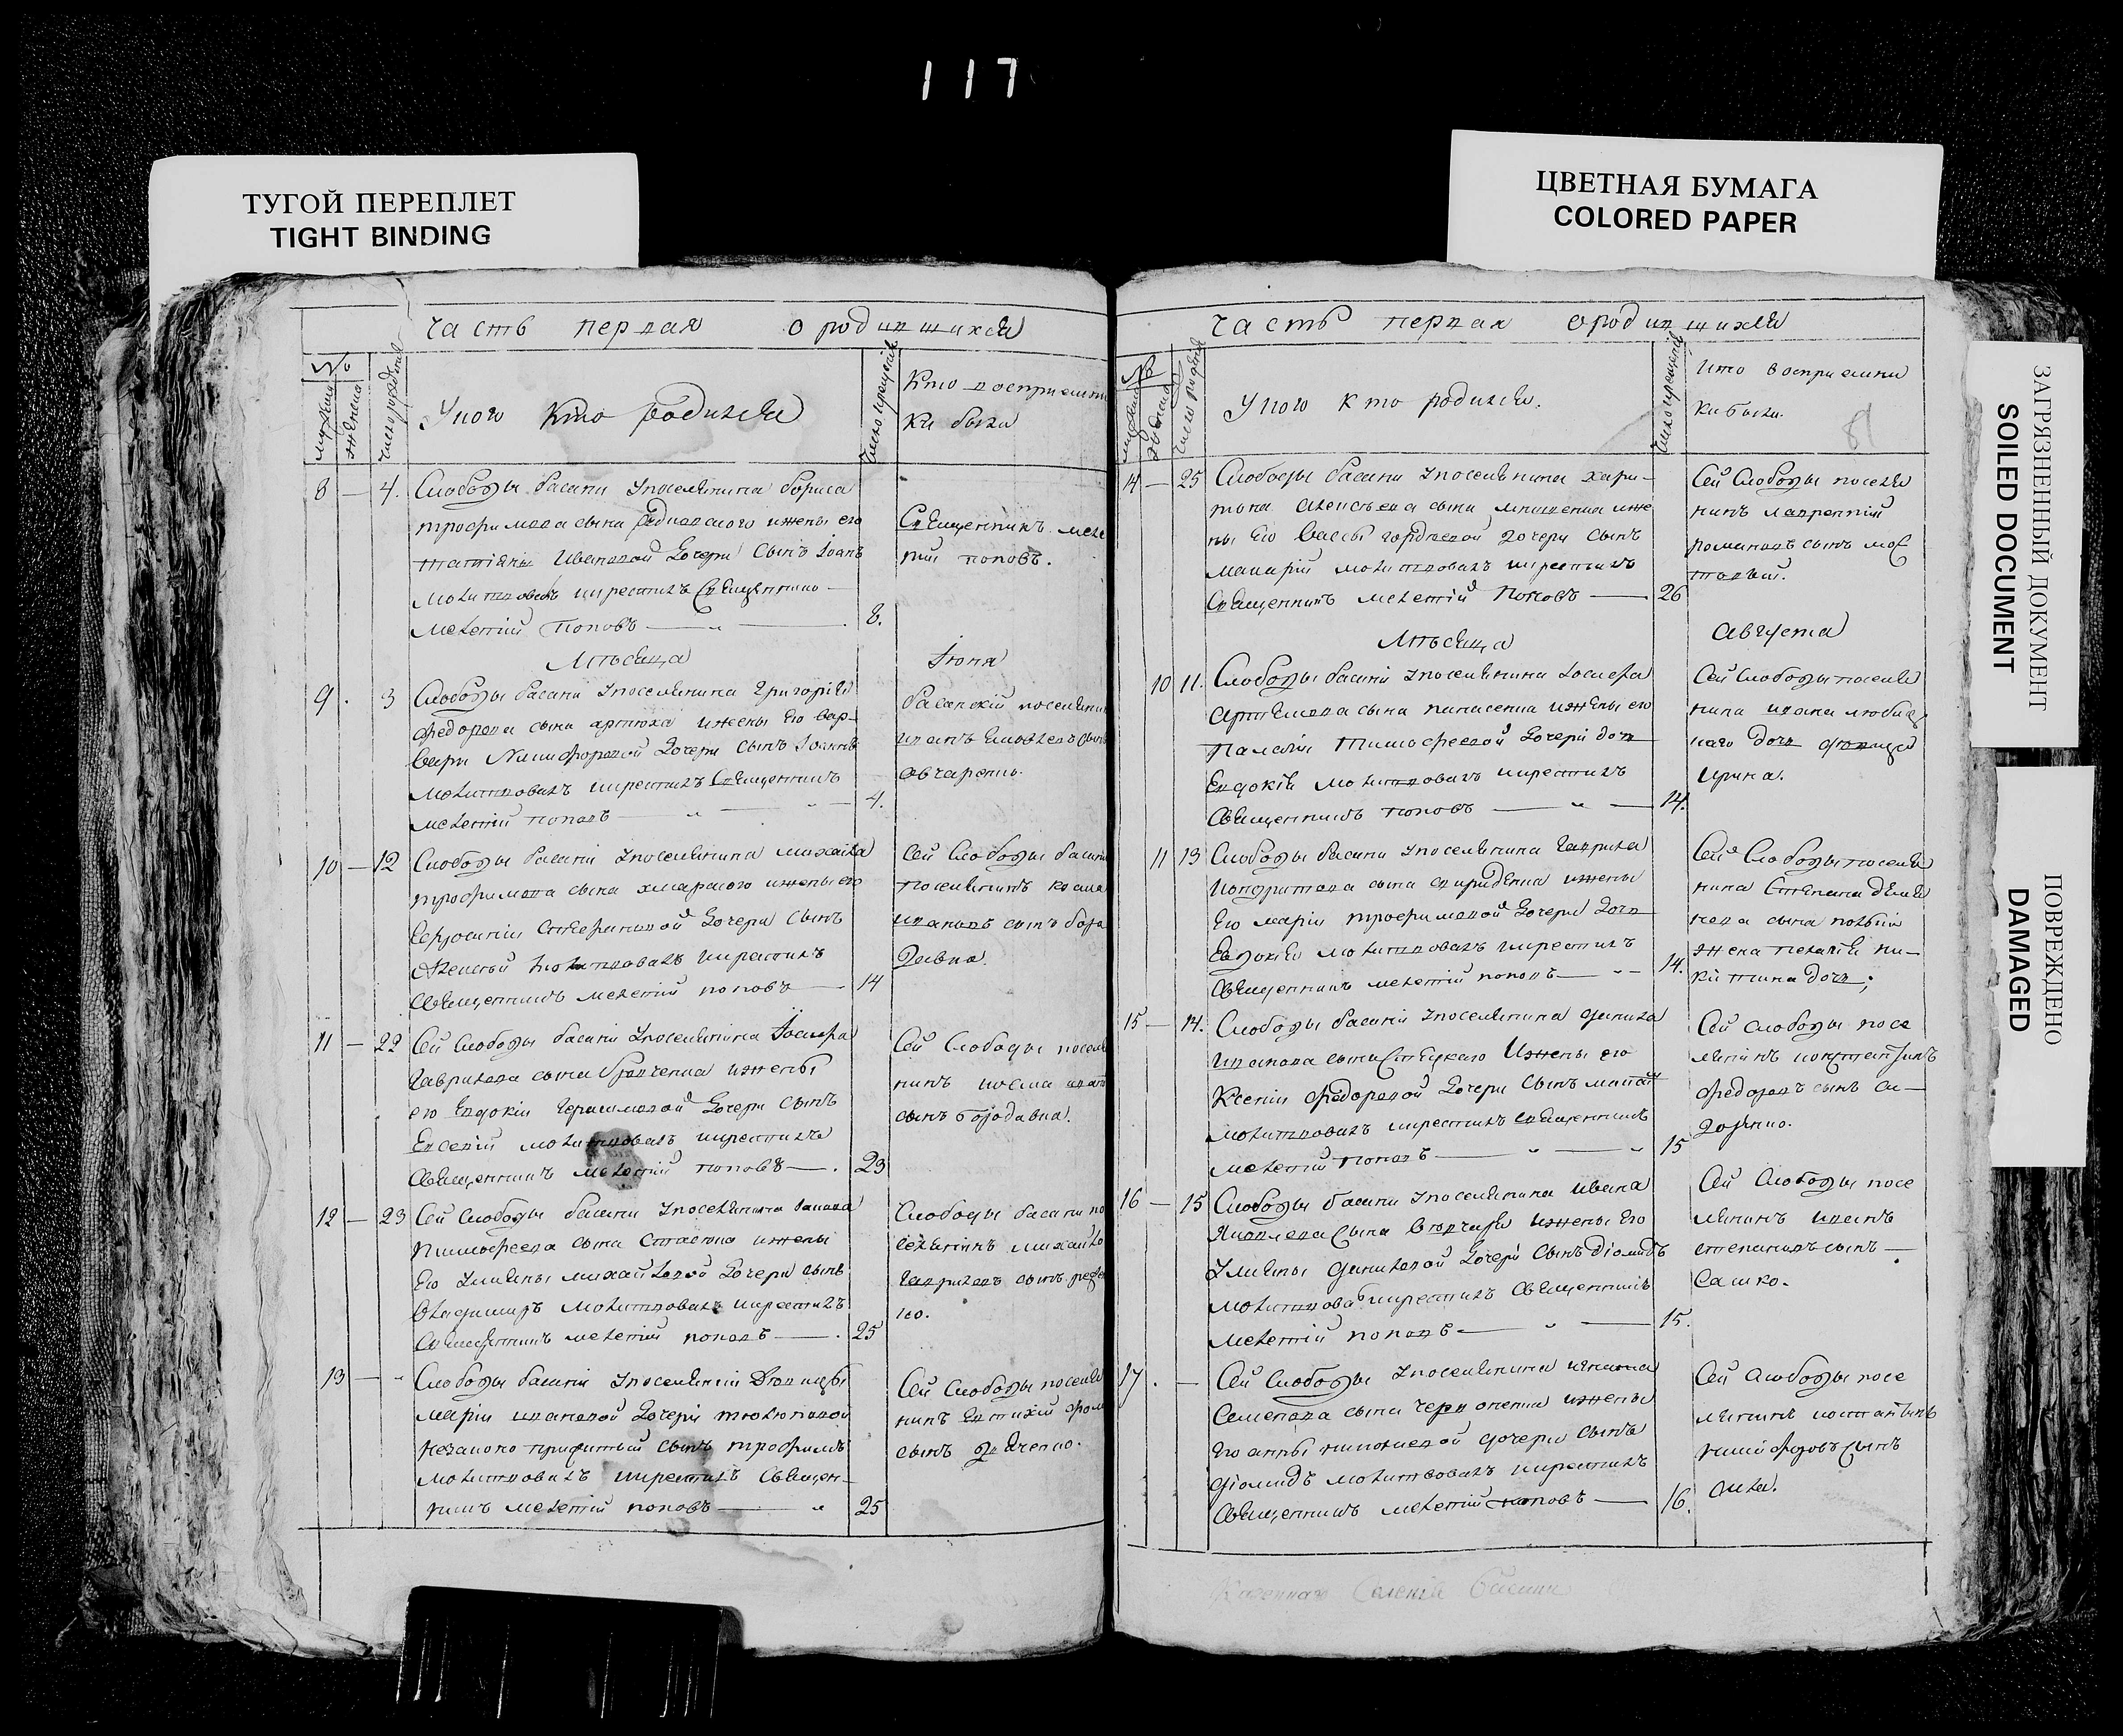 117
ТУГОЙ ПЕРЕПЛЕТ
TIGHT BINDING
ЦВЕТНАЯ БУМАГА
COLORED PAPER
ЗАГРЯЗНЕННЫЙ ДОКУМЕНТ
SOILED DOCUMENT
ПОВРЕЖДЕНО
DAMAGED
часть первая о родившихся
№
число рождения
У кого кто родился
Кто восприемни
ки были
8 — 4. Слободы басани поселянина бориса
трофимова сына жены его
татіяны Ивановой дочери Сынъ Іоанъ
молитвовалъ икрестилъ Священникъ
мелетій Поповъ 8.
Священникъ меле
тій поповъ.
Мѣсяца Іюня
9 3 Слободы басани поселянина григорія
федорова сына артюха ижены его вар-
вары Никифоровой дочери Сынъ Іоаннъ
молитвовалъ икрестилъ Священникъ
мелетій поповъ 4.
басанскій поселянин
иванъ сынъ
овчаренко.
10 — 12 Слободы басани поселянина михаила
трофимова сына хмарского ижены его
Ефросиніи Стефановой дочери Сынъ
Алексей молитвовалъ икрестилъ
Священникъ мелетій поповъ 14
Сей Слободы басани
поселянинъ косма
ивановъ сынъ боро
давка.
11 — 22 Сей Слободы басани поселянина Іосифа
гаврилова сына ижены
его Евдокіи герасимовой дочери Сынъ
Евсевій молитвовалъ икрестилъ
Священникъ мелетій поповъ 23
Сей Слободы поселя
нинъ косма иван
сынъ бородавка.
12 — 23 Сей Слободы басани поселянина
тимофеева сына ижены
его Ульяны михайловой дочери сынъ
Владимиръ молитвовалъ икрестилъ
Священникъ мелетій поповъ 25
Слободы басани по
селянинъ михайло
гавриловъ сынъ
ко.
13 — „ Слободы басани поселянки вдовицы
маріи ивановой дочери
незаконо прижитый сынъ трофимъ
молитвовалъ икрестилъ Священ-
никъ мелетій поповъ 25
Сей Слободы поселя
нинъ Евтихій
сынъ
часть первая о родившихся
№
число рождения
У кого кто родился.
Кто восприемни
ки были.
81
14 — 25 Слободы басани поселянина хари-
тона Алексѣева сына ижe
ны его Вассы гордѣевой дочери Сынъ
макарій молитвовалъ икрестилъ
Священникъ мелетій Поповъ 26
Сей Слободы поселя
нинъ лаврентій
романовъ сынъ мос
товый.
Мѣсяца Августа
10 11. Слободы басани поселянина Іосифа
Артемова сына панасенка ижены его
Палагіи Тимофеевой дочери дочь
Евдокія молитвовалъ икрестилъ
Священникъ поповъ 14.
Сей Слободы поселя
нина ивана
наго дочь девица
ирина.
11 13 Слободы басани поселянина гаврила
кондратова сына свириденка ижены
его маріи трофимовой дочери дочь
Евдокія молитвовалъ икрестилъ
Священникъ мелетій поповъ 14.
Сей Слободы поселя
нина Степана
сына
жена пелагія ни-
китина дочь;
15 — 14. Слободы басани поселянина данила
иванова сына Стецкаго Ижены его
Ксеніи федоровой дочери Сынъ
молитвовалъ икрестилъ священникъ
мелетій поповъ 15
Сей слободы посе
лянинъ константинъ
федоровъ сынъ си-
доренко.
16 — 15 Слободы басани поселянина ивана
Яковлева сына ижены его
Ульяны даниловой дочери Сынъ діомидъ
молитвовалъ икрестилъ Священникъ
мелетій поповъ 15.
Сей Слободы посе
лянинъ иванъ
степановъ сынъ
Сашко.
17. — Сей Слободы поселянина игната
Семенова сына ижены
его анны дочери сынъ
діомидъ молитвовалъ икрестилъ
Священникъ мелетій поповъ 16.
Сей Слободы посе
лянинъ константинъ
никифоровъ сынъ